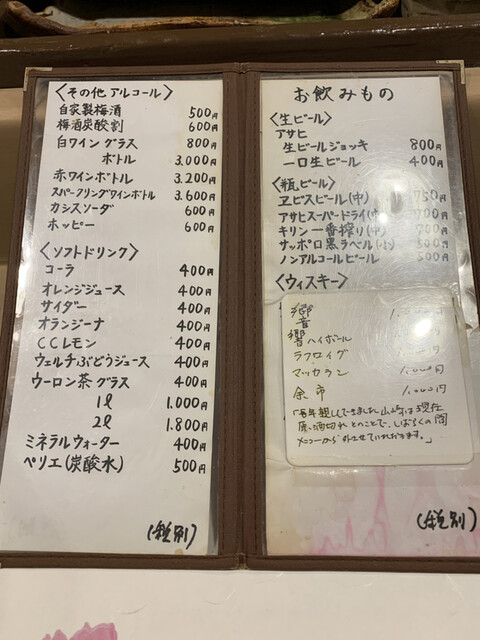 〈その他アルコール〉
自家製梅酒 500円
梅酒炭酸割 600円
白ワイングラス 800円
ボトル 3,000円
赤ワインボトル 3,200円
スパークリングワインボトル 3,600円
カシスソーダ 600円
ホッピー 600円
〈ソフトドリンク〉
コーラ 400円
オレンジジュース 400円
サイダー 400円
オランジーナ 400円
CCレモン 400円
ウェルチぶどうジュース 400円
ウーロン茶グラス 400円
1ℓ 1.000円
2ℓ 1.800円
ミネラルウォーター 400円
ペリエ(炭酸水) 500円
(税別)
お飲みもの
〈生ビール〉
アサヒ
生ビールジョッキ 800円
一口生ビール 400円
〈瓶ビール〉
ヱビスビール(中) 750円
アサヒスーパードライ(中) 700円
キリン一番搾り(中) 700円
サッポロ黒ラベル 500円
ノンアルコールビール 500円
〈ウィスキー〉
響
響ハイボール
ラフロイグ
マッカラン 1,000円
余市 1,000円
「長年親しんできました山崎は現在
原酒切れとのことで、しばらくの間
メニューから外させていただきます。」
(税別)